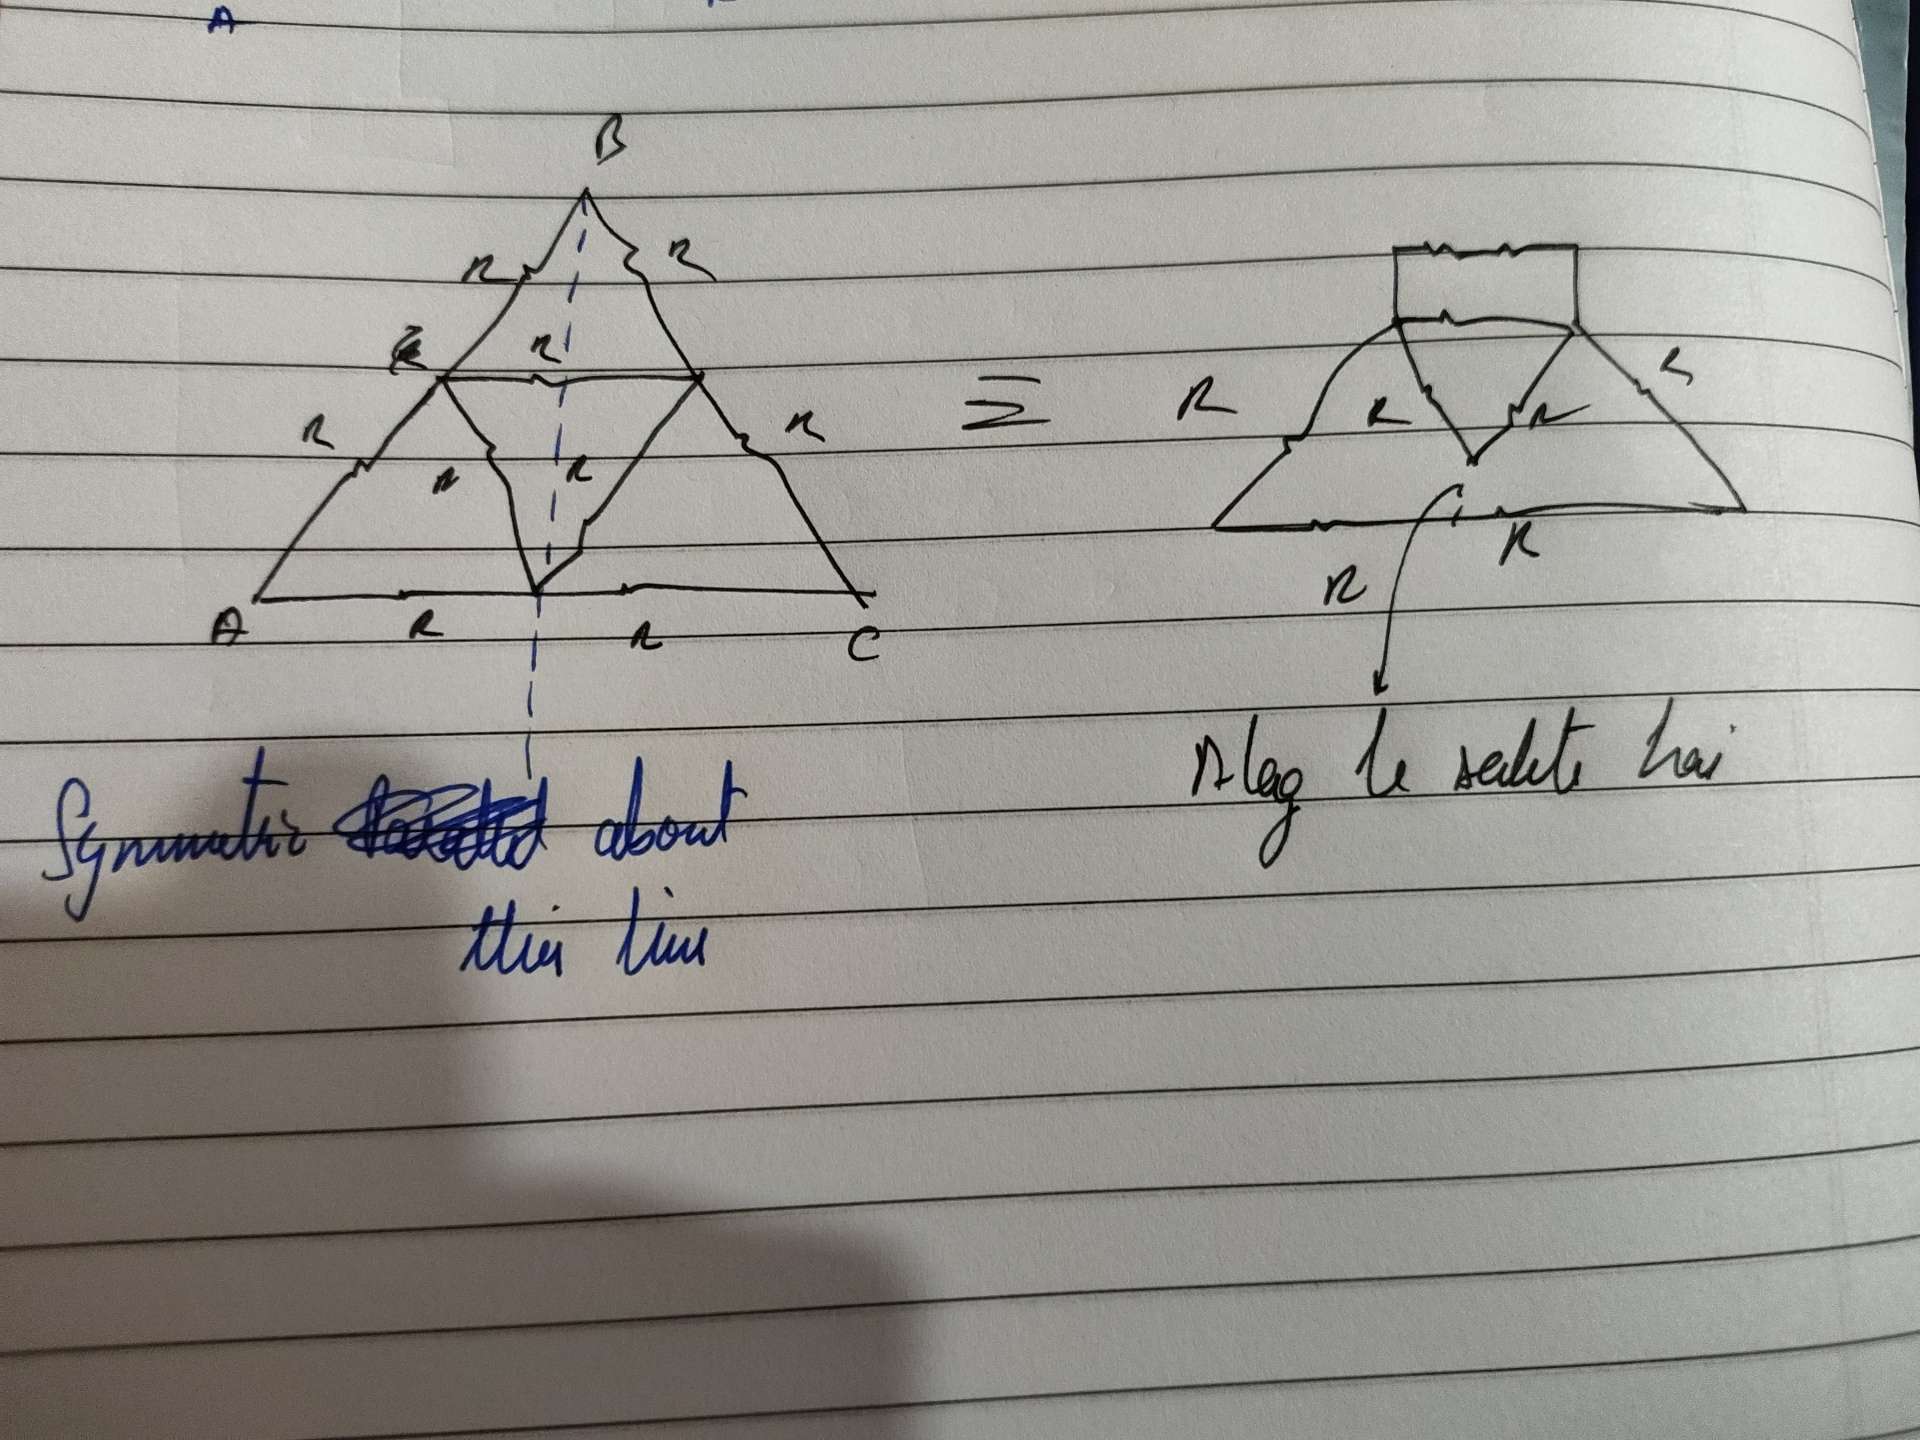 A
B
R R
R
R R
R R R R
R R
A R R C
R
R
Symmetric about
this line
Alag le sakte hai